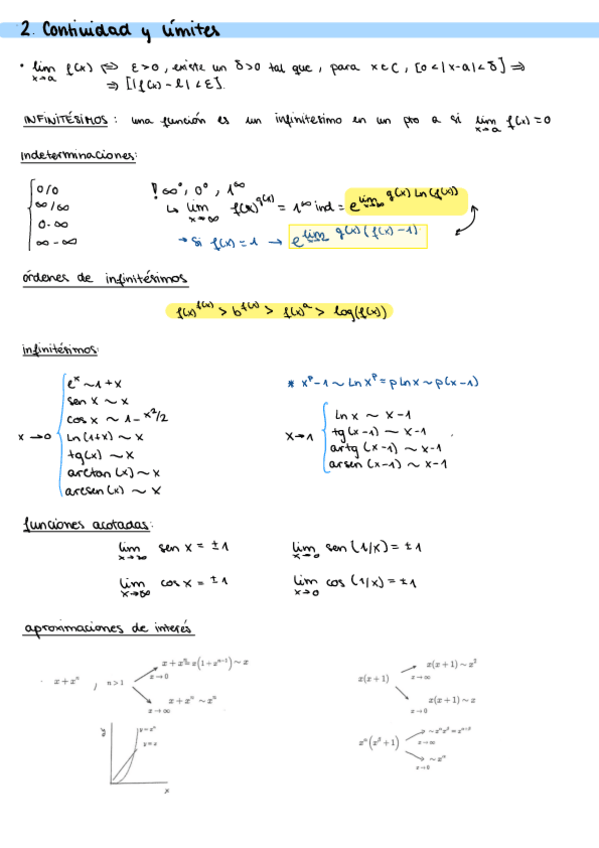 2. Contiuidad y límites
• lim x→a f(x) ⇔ ε>0, existe un δ>0 tal que, para x∈C, [0<|x-a|<δ] ⇒
⇒ [|f(x)-l|<ε].
INFINITÉSIMOS: una función es un infinitesimo en un pto a si lim x→a f(x)=0
Indeterminaciones:
0/0
∞/∞
0·∞
∞-∞
! ∞⁰, 0⁰, 1^∞
↳ lim x→∞ f(x)^g(x) = 1^∞ ind = e^lim g(x) ln(f(x))
→ Si f(x)=1 → e^lim g(x)(f(x)-1)
órdenes de infinitésimos
f(x)^f(x) > b^f(x) > f(x)^a > log(f(x))
infinitésimos:
x→0
e^x ~ 1+x
sen x ~ x
cos x ~ 1-x²/2
ln(1+x) ~ x
tg(x) ~ x
arctan(x) ~ x
arcsen(x) ~ x
* x^p-1 ~ ln x^p = p ln x ~ p(x-1)
x→1
ln x ~ x-1
tg(x-1) ~ x-1
artg(x-1) ~ x-1
arsen(x-1) ~ x-1
funciones acotadas:
lim x→∞ sen x = ±1
lim x→0 sen(1/x) = ±1
lim x→∞ cos x = ±1
lim x→0 cos(1/x) = ±1
aproximaciones de interés
x+x^n, n>1
x+x^n=x(1+x^(n-1)) ~ x
x→0
x+x^n ~ x^n
x→∞
y=x^n
y=x
x
x(x+1)
x(x+1) ~ x²
x→∞
x(x+1) ~ x
x→0
~ x^n
x→0